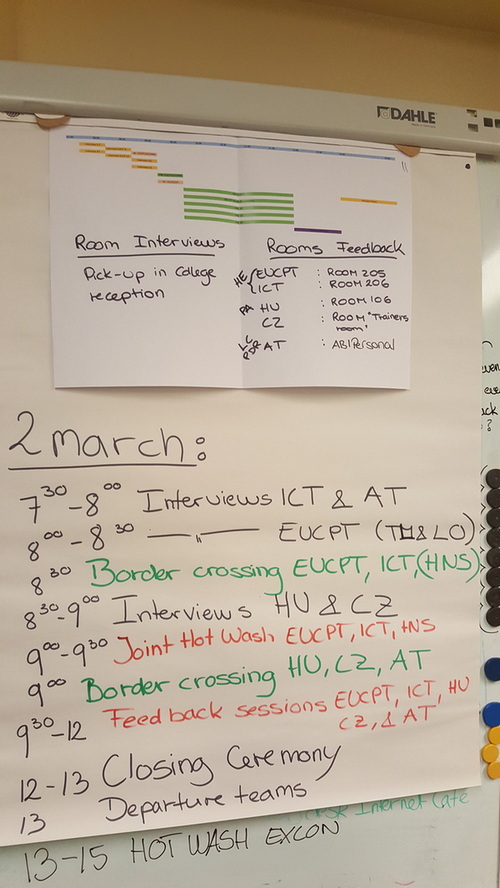 DAHLE
Room Interviews
Pick-up in College
reception
Rooms Feedback
HE EUCPT : ROOM 205
ICT : ROOM 206
PA HU : ROOM 106
CZ : ROOM "Trainers
room"
AT : ABI Personal
2 march:
7³⁰-8⁰⁰ Interviews ICT & AT
8⁰⁰-8³⁰ —〃— EUCPT (TL & LO)
8³⁰ Border crossing EUCPT, ICT, (HNS)
8³⁰-9⁰⁰ Interviews HU & CZ
9⁰⁰-9³⁰ Joint Hot Wash EUCPT, ICT, HNS
9⁰⁰ Border crossing HU, CZ, AT
9³⁰-12 Feedback sessions EUCPT, ICT, HU
CZ, & AT
12-13 Closing Ceremony
13 Departure teams
Internet Cafe
13-15 HOT WASH EXCON